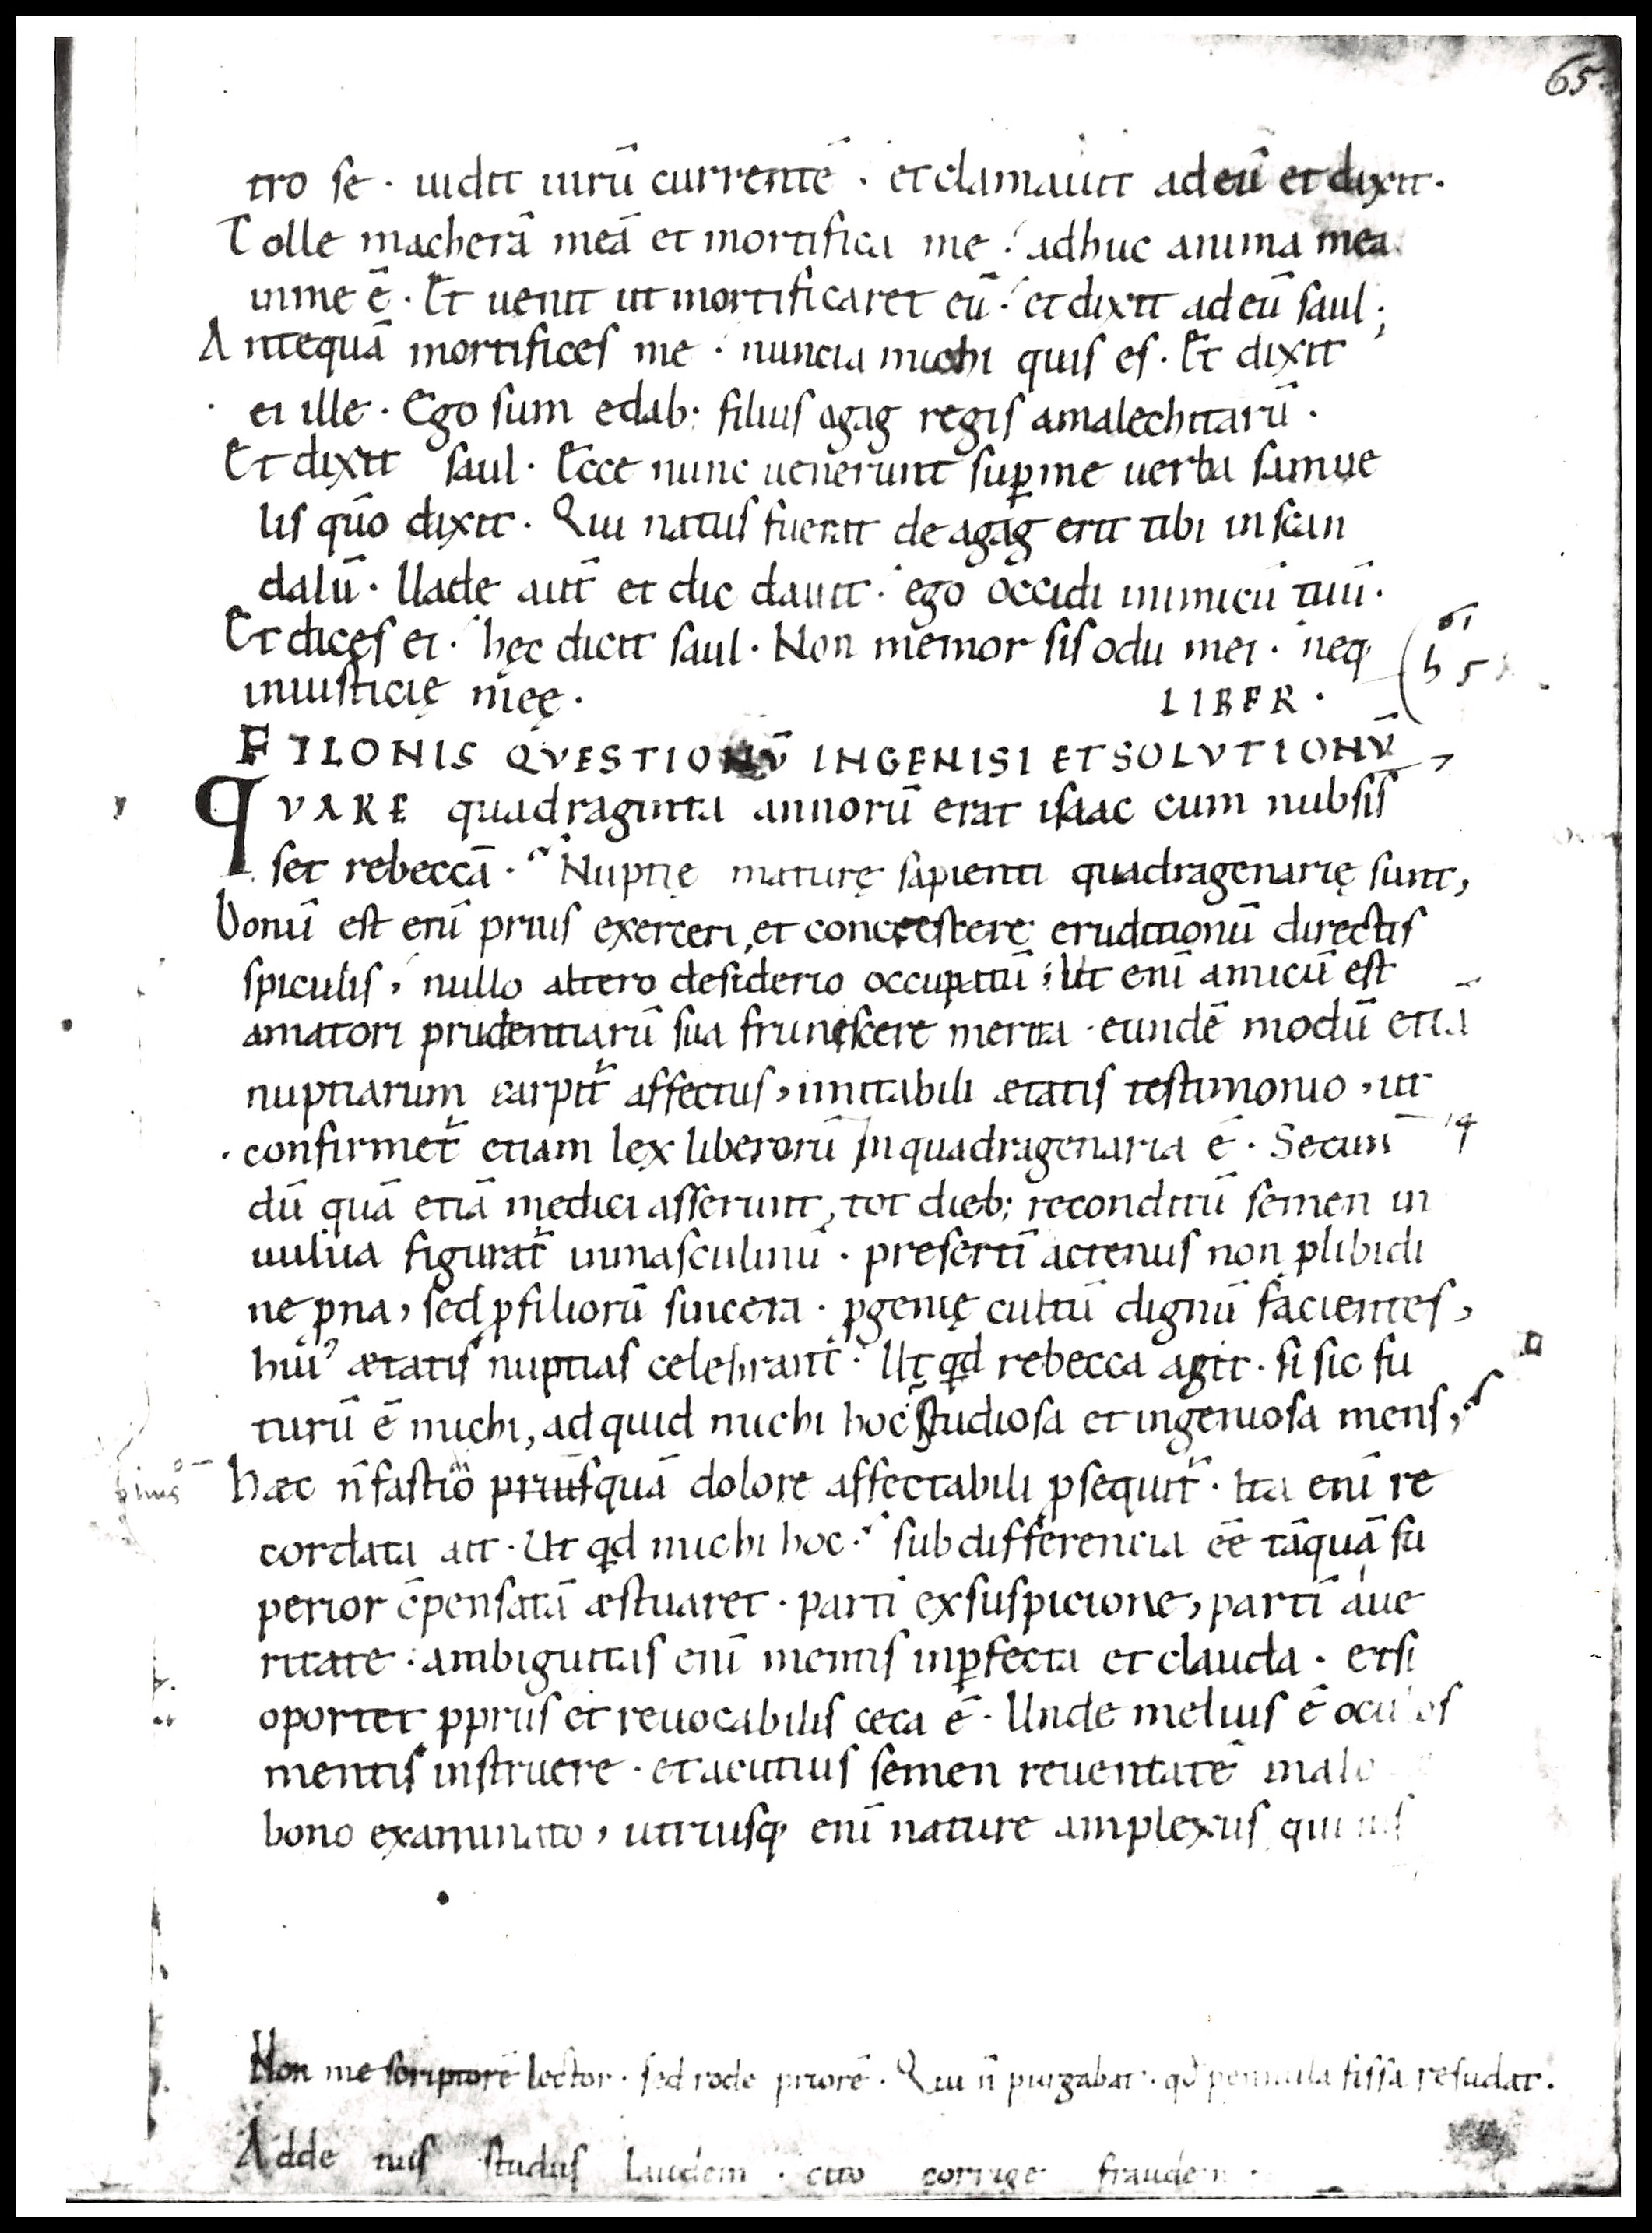 65.
tro se · uidit uirū currentē · et clamauit ad eū et dixit·
Tolle macherā meā et mortifica me · adhuc anima mea
in me ē · Et uenit ut mortificaret eū · et dixit ad eū saul ;
Antequā mortifices me · nuncia michi quis es · Et dixit
ei ille · Ego sum edab; filius agag regis amalechitarū ·
Et dixit saul · Ecce nunc uenerunt sup me uerba samue
lis quō dixit · Qui natus fuerit de agag erit tibi in scan
dalū · Uade aut̄ et dic dauit · ego occidi inimicū tuū ·
Et dices ei · hęc dicit saul · Non memor sis odii mei · neq;
iniusticię męę · LIBER ·
FILONIS QVESTIONV̄ IN GENESI ET SOLVTIONV̄
QVARE quadraginta annorū erat isaac cum nubsis
set rebeccā · Nuptię maturę sapienti quadragenarię sunt,
bonū est enī prius exerceri, et concrescere eruditionū directis
spiculis, nullo altero desiderio occupatū ; Ut enī amicū est
amatori prudentiarū sua frunescere merita · eundē modū etiā
nuptiarum carpit̄ affectus, imitabili ætatis testimonio, ut
confirmet̄ etiam lex liberorū in quadragenaria ē · Secun
dū quā etiā medici asserunt, tot dieb; reconditū semen in
uulua figurat̄ in masculinū · presertī actenus non p libidi
ne pna, sed p filiorū sincera · pgenię cultū dignū facientes,
hui' ætatis nuptias celebrant̄ · Ut qd rebecca agit · si sic fu
turū ē michi, ad quid michi hoc studiosa et ingeniosa mens,
Hæc n̄ fastiō priusquā dolore affectabili psequit̄ · Ita enī re
cordata ait · Ut qd michi hoc · sub differencia eē tāquā su
perior c̄pensatā æstuaret · partī ex suspicione, partī a ue
ritate · ambiguitas enī mentis inpfecta et clauda · etsi
oportet pprius et reuocabilis ceca ē · Unde melius ē oculos
mentis instruere · et acutius semen reuentatē malo
bono examinato, utriusq; enī nature amplexus
Non me scriptorē lector · sed rode priorē · Qui n̄ purgabat · qd pennula fissa resudat ·
Adde tuis studiis laudem · cito corrige fraudem ·